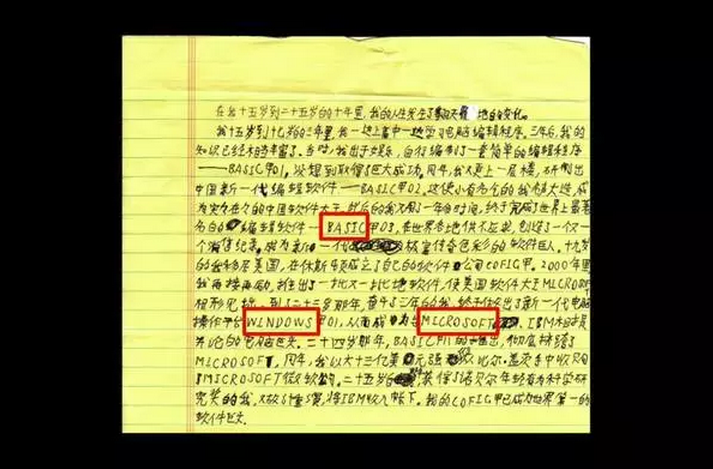 在我十五岁到二十五岁的十年里,我的人生发生了翻天覆地的变化。
我十五岁到十七岁的三年里,我一边上高中一边学习电脑编辑程序。三年后,我的
知识已经相当丰富了。当时,我出于娱乐,自行编制了一套简单的编辑程序
——BASIC甲01,没想到取得了巨大成功,同年,我又更上一层楼,研制出
中国新一代编辑软件——BASIC甲02。这使小有名气的我被大造,成
为实实在在的中国软件大王,此后的我又用了一年的时间,终于完成了世界上最著
名的编辑软件—BASIC甲03,在世界各地供不应求,创造了一个又一
个销售纪录,成为新一代极富传奇色彩的软件巨人。十九岁
的我移居美国,在休斯顿成立了自己的软件公司COFIG甲。2000年里
我再接再励,推出了一批又一批地软件,使美国软件大王MICROSOFT
相形见绌,到了二十三岁那年,奋斗了三年的我,终于推出了新一代电脑
操作平台WINDOWS甲01,从而成为与MICROSOFT、IBM相提
并论的电脑巨头。二十四岁那年,BASIC甲11的推出,彻底挤跨了
MICROSOFT,同年,我以大十三亿美元强 比尔·盖茨手中收购
了MICROSOFT微软公司。二十五岁的 ,获得了诺贝尔年轻有为科学研
究奖的我,又故 ,将IBM收入帐下。我的COFIG甲已成为世界第一的
软件巨头。